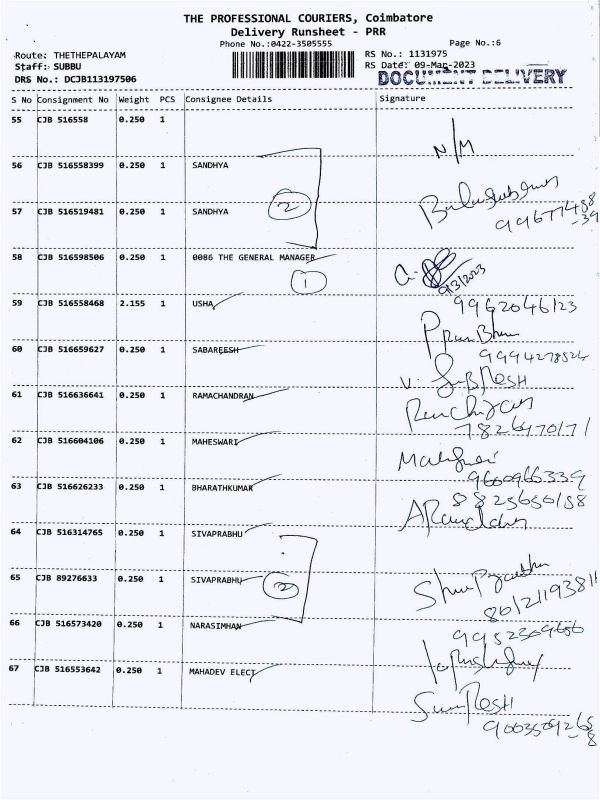 THE PROFESSIONAL COURIERS, Coimbatore
Delivery Runsheet - PRR
Phone No.:0422-3505555
Page No.:6
Route: THETHEPALAYAM
RS No.: 1131975
Staff: SUBBU
RS Date: 09-Mar-2023
DRS No.: DCJB113197506
DOCUMENT DELIVERY
S No Consignment No Weight PCS Consignee Details Signature
55 CJB 516558 0.250 1
N/M
56 CJB 516558399 0.250 1 SANDHYA
2
57 CJB 516519481 0.250 1 SANDHYA
58 CJB 516598506 0.250 1 0086 THE GENERAL MANAGER
1
9/3/2023
59 CJB 516558468 2.155 1 USHA
9962046123
60 CJB 516659627 0.250 1 SABAREESH
61 CJB 516636641 0.250 1 RAMACHANDRAN
62 CJB 516604106 0.250 1 MAHESWARI
63 CJB 516626233 0.250 1 BHARATHKUMAR
64 CJB 516314765 0.250 1 SIVAPRABHU
65 CJB 89276633 0.250 1 SIVAPRABHU
2
66 CJB 516573420 0.250 1 NARASIMHAN
67 CJB 516553642 0.250 1 MAHADEV ELECT